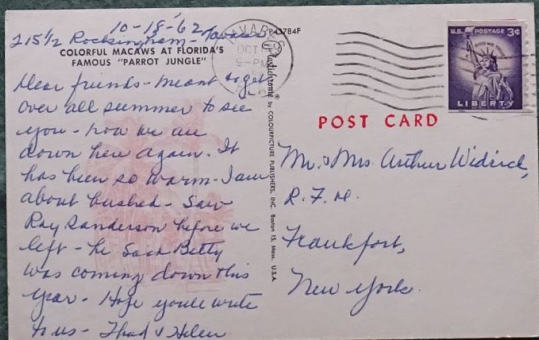 10-18-'62
215½ Rockingham - Tavares
COLORFUL MACAWS AT FLORIDA'S
FAMOUS "PARROT JUNGLE"
Dear friends - meant to get
over all summer to see
you - now we are
down here again. It
has been so warm - I am
about bushed - Saw
Ray Sanderson before we
left - he said Betty
was coming down this
year - Hope you'll write
to us - Thad & Helen
TAVARES
OCT
PM
by COLOURPICTURE PUBLISHERS, INC. Boston 15, Mass. U.S.A.
U.S. POSTAGE 3¢
LIBERTY
POST CARD
Mr. & Mrs. Arthur Widrick,
Frankfort,
New York.